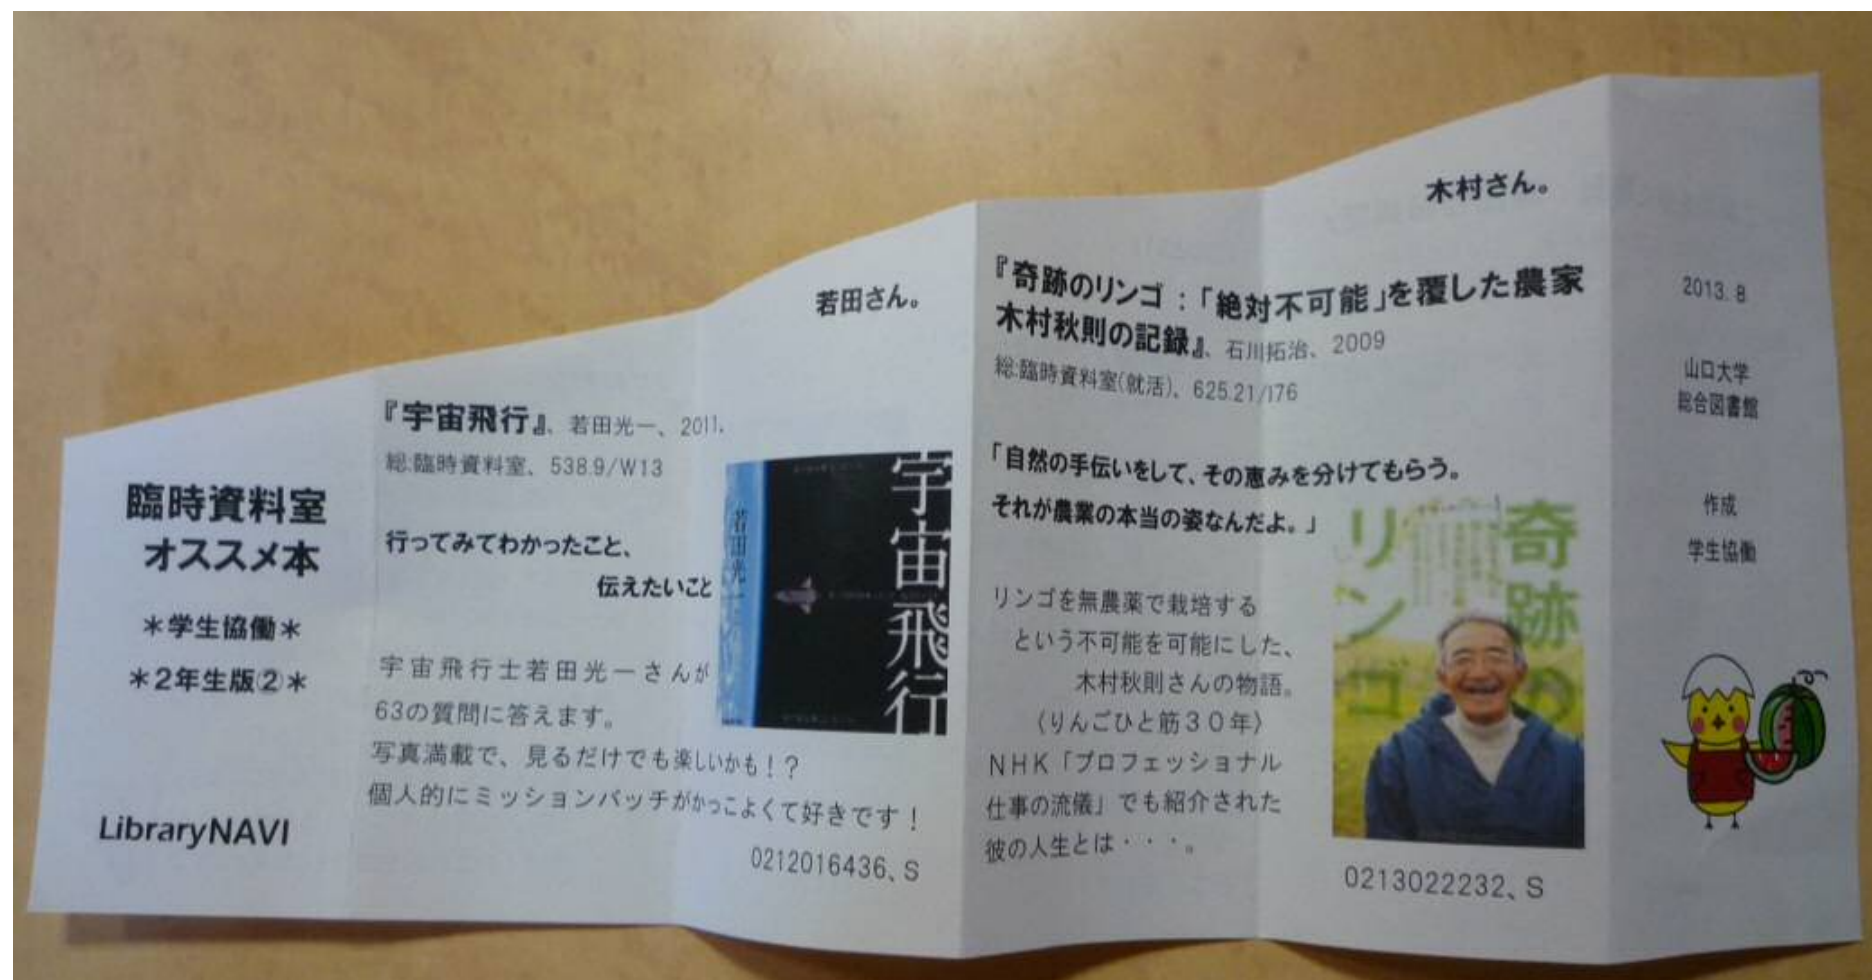 臨時資料室
オススメ本
*学生協働*
*2年生版②*
LibraryNAVI
若田さん。
『宇宙飛行』、若田光一、2011.
総:臨時資料室、538.9/W13
行ってみてわかったこと、
伝えたいこと
宇宙飛行士若田光一さんが
63の質問に答えます。
写真満載で、見るだけでも楽しいかも!?
個人的にミッションパッチがかっこよくて好きです!
宇宙飛行
若田光一
0212016436、S
木村さん。
『奇跡のリンゴ:「絶対不可能」を覆した農家
木村秋則の記録』、石川拓治、2009
総:臨時資料室(就活)、625.21/I76
「自然の手伝いをして、その恵みを分けてもらう。
それが農業の本当の姿なんだよ。」
リンゴを無農薬で栽培する
という不可能を可能にした、
木村秋則さんの物語。
(りんごひと筋30年)
NHK「プロフェッショナル
仕事の流儀」でも紹介された
彼の人生とは・・・。
奇跡の
リンゴ
0213022232、S
2013.8
山口大学
総合図書館
作成
学生協働